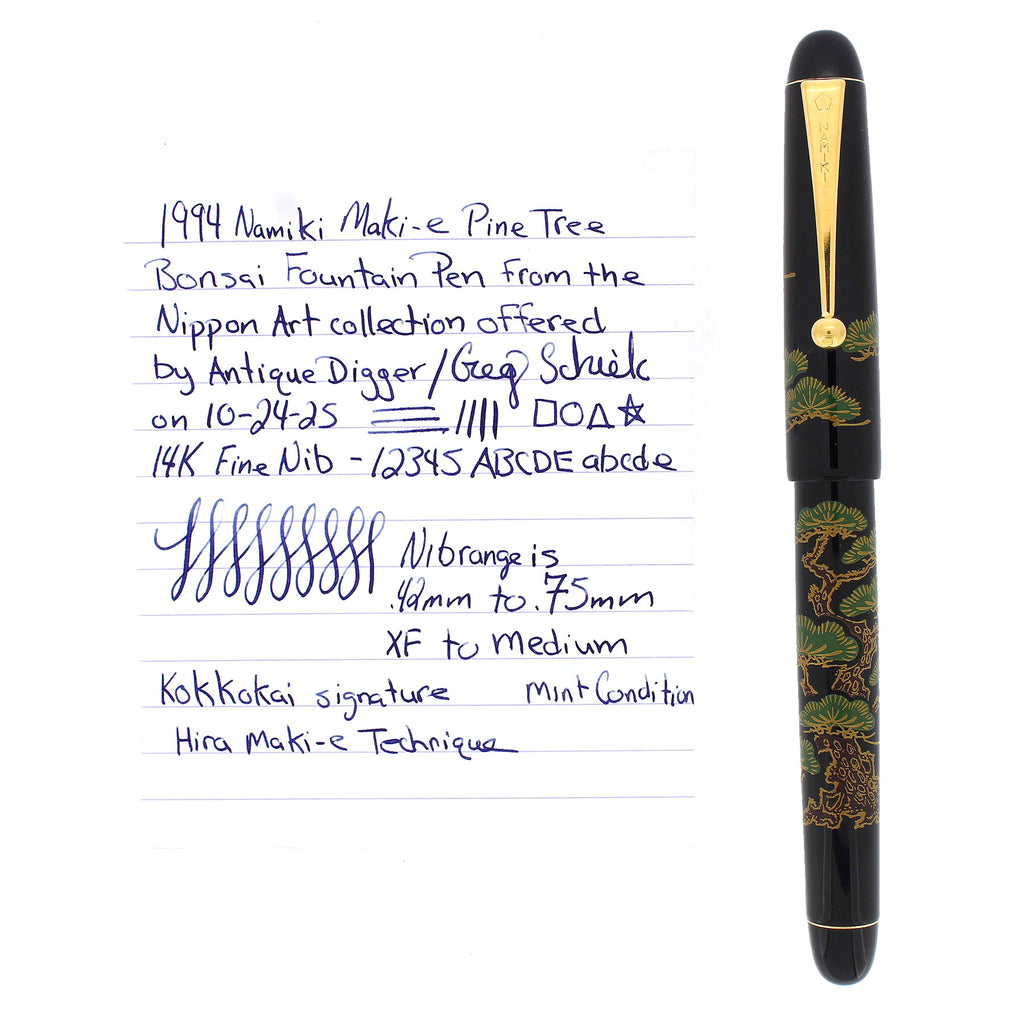 1994 Namiki Maki-e Pine Tree
Bonsai Fountain Pen from the
Nippon Art collection offered
by Antique Digger/Greg
on 10-24-25
14K Fine Nib - 12345 ABCDE abcde
Nib range is
.42mm to .75mm
XF to medium
Kokkokai signature mint Condition
Hira Maki-e Technique
NAMIKI